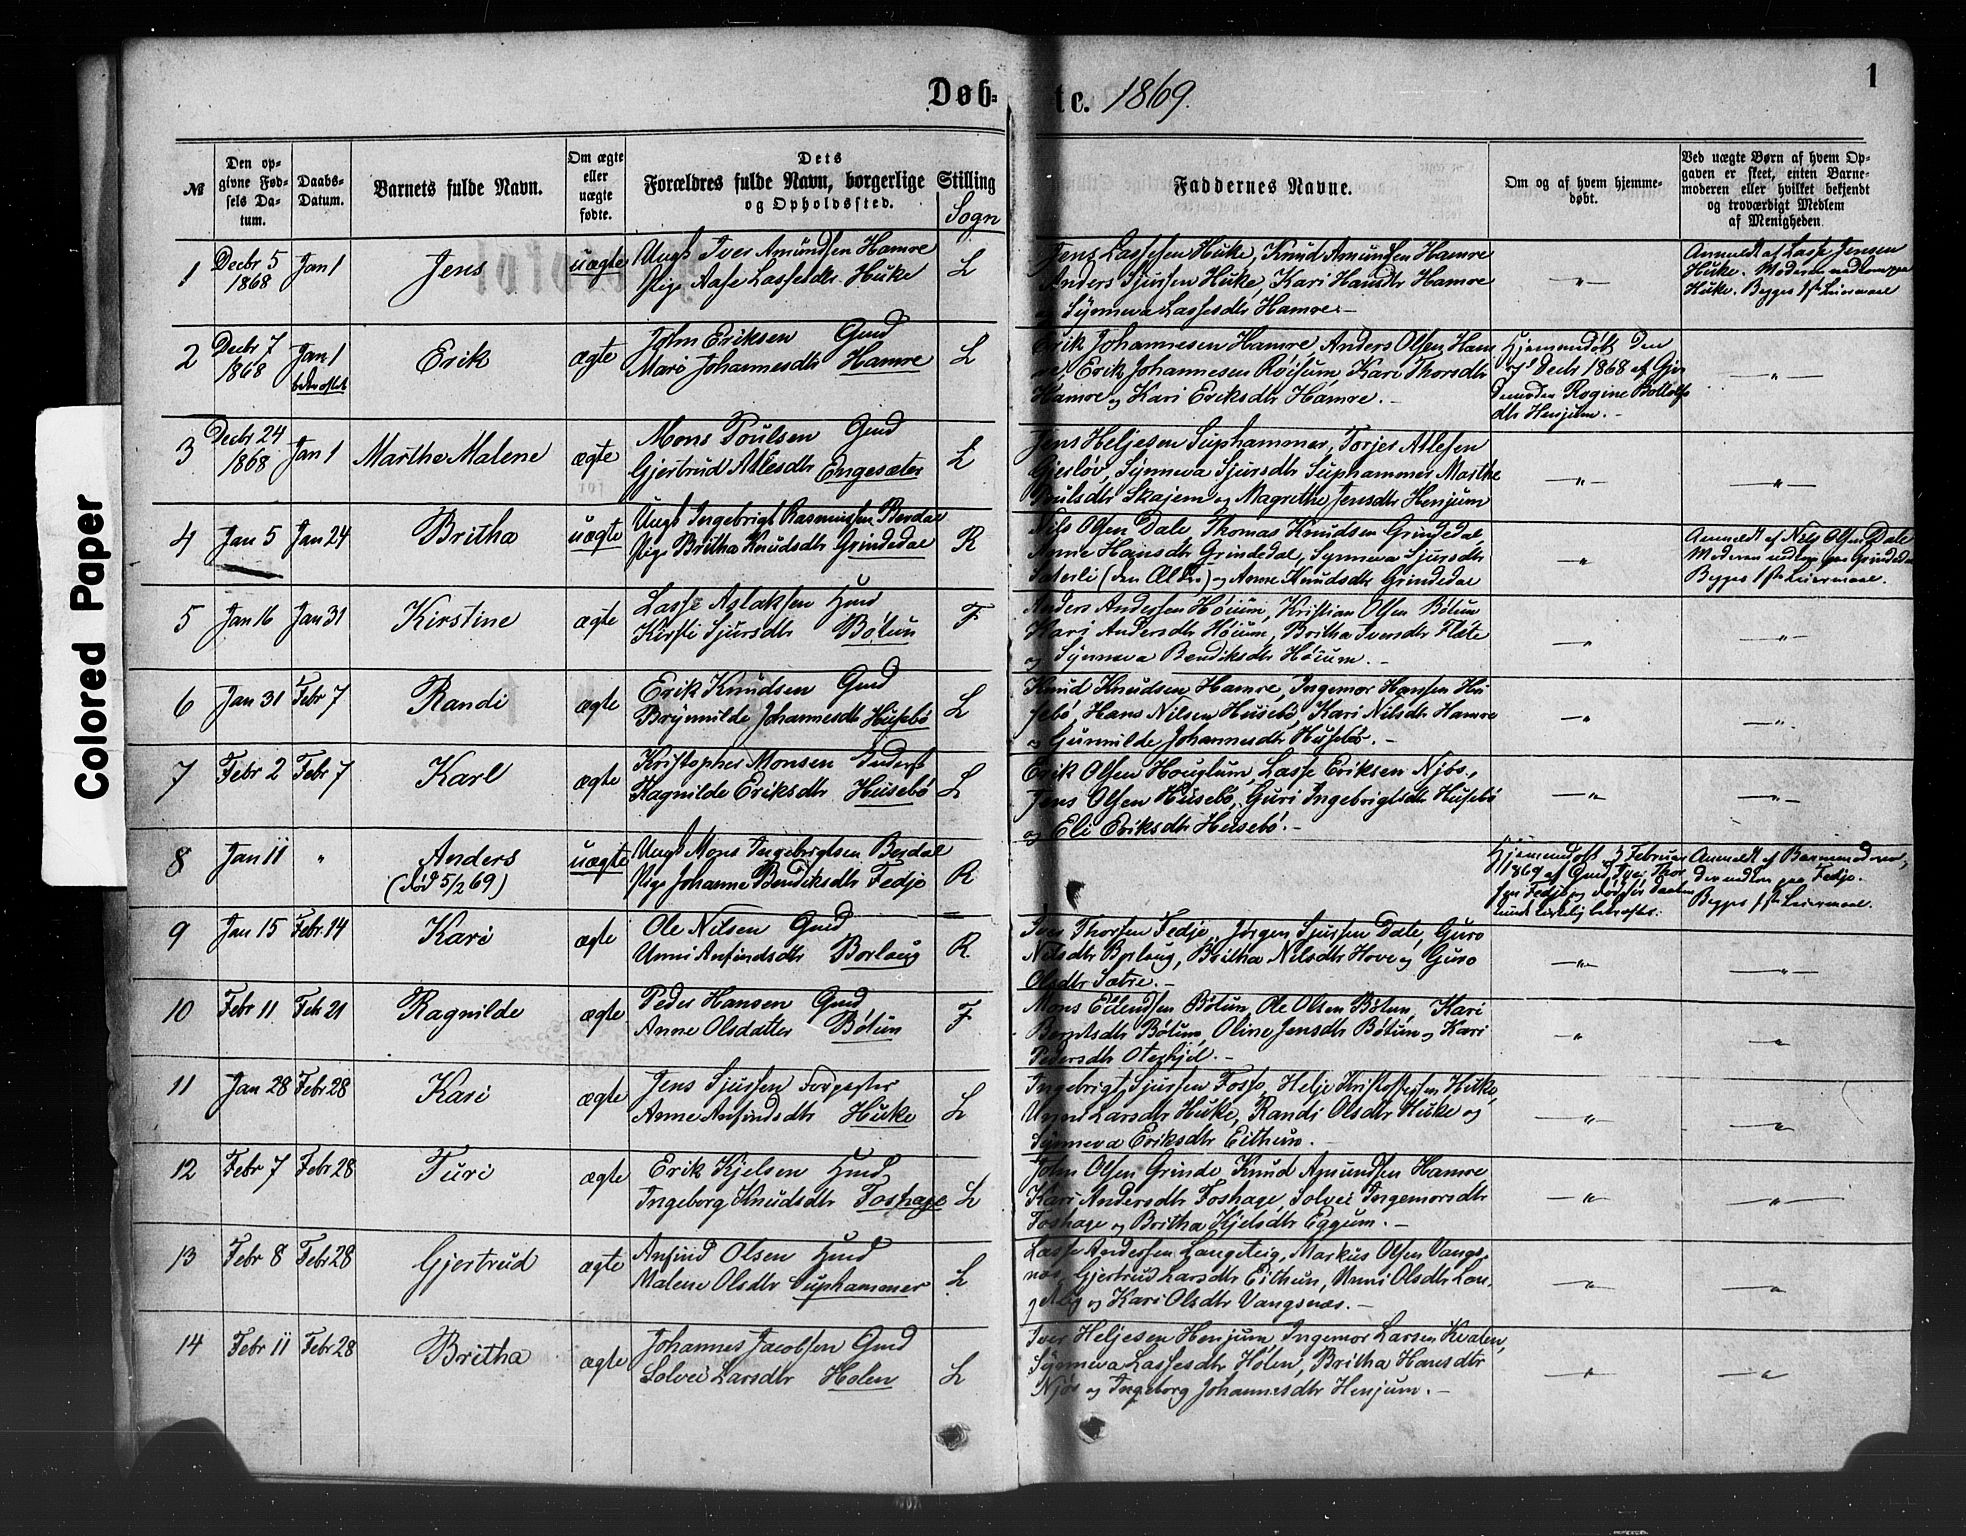 1
Døb-te. 1869.
Colored Paper
№
Den op-
givne Fød-
sels Da-
tum.
Daabs-
Datum.
Barnets fulde Navn.
Om ægte
eller
uægte
fødte.
Dets
Forældres fulde Navn, borgerlige Stilling
og Opholdssted.
Sogn
Faddernes Navne.
Om og af hvem hjemme-
døbt.
Ved uægte Børn af hvem Op-
gaven er skeet, enten Barne-
moderen eller hvilket bekjendt
og troværdigt Medlem
af Menigheden.
1 Decbr 5 1868 Jan 1 Jens uægte
Ungk Iver Amundsen Hamre
Pige Aase Lassesdtr Huke L
Jens Lassesen Huke, Knud Amundsen Hamre
Anders Sjursen Huke, Kari Hansdtr Hamre
og Synneva Lassesdtr Hamre.-
—"—
Anmeldt af Lasse Jensen
Huke. Moderen nedkom paa
Huke. Begges 1ste Leiermaal
2 Decbr 7 1868 Jan 1 bekræftet Erik ægte
John Eriksen Gmd
Mari Johannesdtr Hamre L
Erik Johannesen Hamre, Anders Olsen Ham
re, Erik Johannesen Röisum, Kari Thorsdtr
Hamre og Kari Eriksdtr Hamre.-
Hjemmedöbt den
7 Decbr 1868 af Gjor
demoden Rogine Bottolfs
dtr Henjum.-
—"—
3 Decbr 24 1868 Jan 1 Marthe Malene ægte
Mons Poulsen Gmd
Gjertrud Atlesdtr Engesæter L
Jens Heljesen Suphammer, Torjer Atlesen
Gjesløv, Synneva Sjursdtr Suphammer Marthe
Poulsdtr Skajem og Magrethe Jensdtr Henjum
—"—
—"—
4 Jan 5 Jan 24 Britha uægte
Ungk Ingebrigt Rasmussen Berdal
Pige Britha Knudsdtr Grindedal R
Nils Olsen Dale, Thomas Knudsen Grindedal,
Anne Hansdtr Grindedal, Synneva Sjursdtr
Säterli (den Ældre) og Anne Knudsdtr Grindedal
"
Anmeldt af Nils Olsen Dale
Moderen nedkom paa Grindedal
Begges 1ste Leiermaal.
5 Jan 16 Jan 31 Kirstine ægte
Lasse Aslaksen Hmd
Kirsti Sjursdtr Bötun F
Anders Andersen Höium, Kristian Olsen Bötun
Kari Andersdtr Höium, Britha Iversdtr Flåte
og Synneva Bendiksdtr Höium.-
—"—
—"—
6 Jan 31 Febr 7 Randi ægte
Erik Knudsen Gmd
Brynnilde Johannesdtr Husebö L
Knud Knudsen Hamre, Ingemor Hansen Hu
sebö, Hans Nilsen Husebö, Kari Nilsdtr Hamre
og Gunnilde Johannesdtr Husebö.-
—"—
—"—
7 Febr 2 Febr 7 Karl ægte
Kristopher Monsen Inderst
Ragnilde Eriksdtr Husebö L
Erik Olsen Houglum, Lasse Eriksen Njös,
Jens Olsen Husebö, Guri Ingebrigtsdtr Husebö
og Eli Eriksdtr Husebö.-
—"—
—"—
8 Jan 11 " Anders uægte
(död 5/2 69)
Ungk Mons Ingebrigtsen Berdal
Pige Johanne Bendiksdtr Fedje R
Hjemmedöbt 3 Februar
1869 af Gmd Iver Thor
sen Fedje og döde för Daaben
kunde kirkelig bekræftes.
Anmeldt af Barnemoderen,
der nedkom paa Fedje.
Begges 1ste Leiermaal.
9 Jan 15 Febr 14 Kari ægte
Ole Nilsen Gmd
Unni Anfindsdtr Borlaug R.
Iver Thorsen Fedje, Jörgen Sjursen Dale, Guro
Nilsdtr Borlaug, Britha Nilsdtr Hove og Guro
Olsdtr Sætre.-
—"—
—"—
10 Febr 11 Feb 21 Ragnilde ægte
Peder Hansen Gmd
Anne Olsdatter Bötun F
Mons Ellendsen Bötun, Ole Olsen Bötun, Kari
Berntsdtr Bötun, Oline Jensdtr Bötun og Kari
Pedersdtr Oterhjel.-
"
"
11 Jan 28 Febr 28 Kari ægte
Jens Sjursen Forpagter
Anne Anfindsdtr Huke L
Ingebrigt Sjursen Fosse, Helje Kristoffersen Huke,
Larsdtr Huke, Randi Olsdtr Huke og
Synneva Eriksdtr Eithun.-
—"—
"
12 Febr 7 Febr 28 Turi ægte
Erik Kjelsen Hmd
Ingeborg Knudsdtr Foshage L
John Olsen Grinde, Knud Amundsen Hamre
Kari Andersdtr Foshage, Solvei Ingemorsdtr
Foshage og Britha Kjelsdtr Eggum.-
—"—
—"—
13 Febr 8 Febr 28 Gjertrud ægte
Anfind Olsen Hmd
Malene Olsdtr Suphammer L
Lasse Andersen Langeteig, Markus Olsen Vangs-
næs, Gjertrud Larsdtr Eithun, Unni Olsdtr Lan-
geteig og Kari Olsdtr Vangsnæs.-
"
"
14 Febr 11 Febr 28 Britha ægte
Johannes Jacobsen Gmd
Solvei Larsdtr Holen L
Iver Heljesen Henjum, Ingemor Larsen Kvalen,
Synneva Lassesdtr Holen, Britha Hansdtr
Njös og Ingeborg Johannesdtr Henjum.-
—"—
"